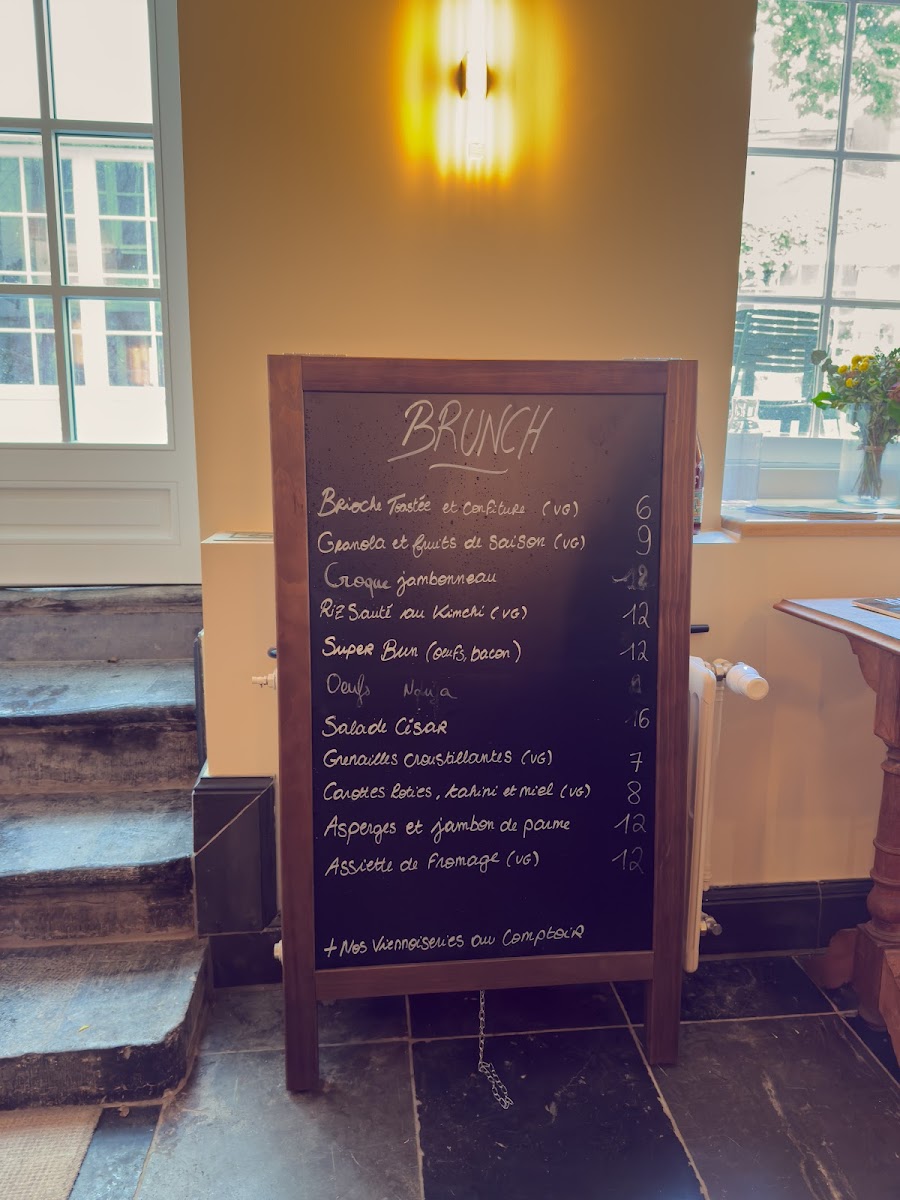 BRUNCH
Brioche Toastée et confiture (VG) 6
Granola et fruits de saison (VG) 9
Croque jambonneau 12
Riz Sauté au Kimchi (VG) 12
Super Bun (oeufs, bacon) 12
Oeufs
Salade César 16
Grenailles croustillantes (VG) 7
Carottes Roties, tahini et miel (VG) 8
Asperges et jambon de parme 12
Assiette de Fromage (VG) 12
+ Nos Viennoiseries au comptoir